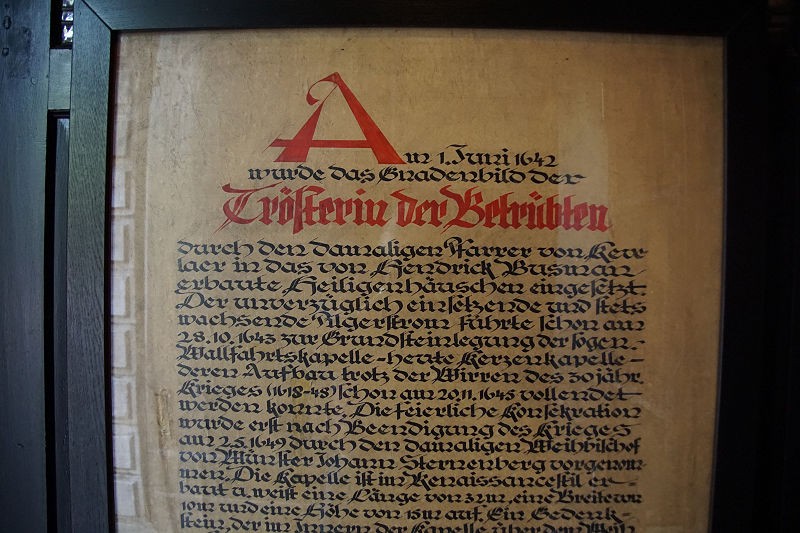 Am 1. Juni 1642
wurde das Gnadenbild der
Trösterin der Betrübten
durch den damaligen Pfarrer von Keve
laer in das von Hendrick Busman
erbaute Heiligenhäuschen eingesetzt.
Der unverzüglich einsetzende und stets
wachsende Pilgerstrom führte schon am
28.10.1643 zur Grundsteinlegung der sogen.-
Wallfahrtskapelle-heute Kerzenkapelle-
deren Aufbau trotz der Wirren des 30jähr.
Krieges (1618-48) schon am 20.11.1645 vollendet
werden konnte. Die feierliche Konsekration
wurde erst nach Beendigung des Krieges
am 2.5.1649 durch den damaligen Weihbischof
von Münster Johann Sternenberg vorgenom-
men. Die Kapelle ist im Renaissancestil er-
baut u. weist eine Länge von 32m, eine Breite von
10m und eine Höhe von 15m auf. Ein Gedenk-
stein, der im Innern der Kapelle über dem Weih